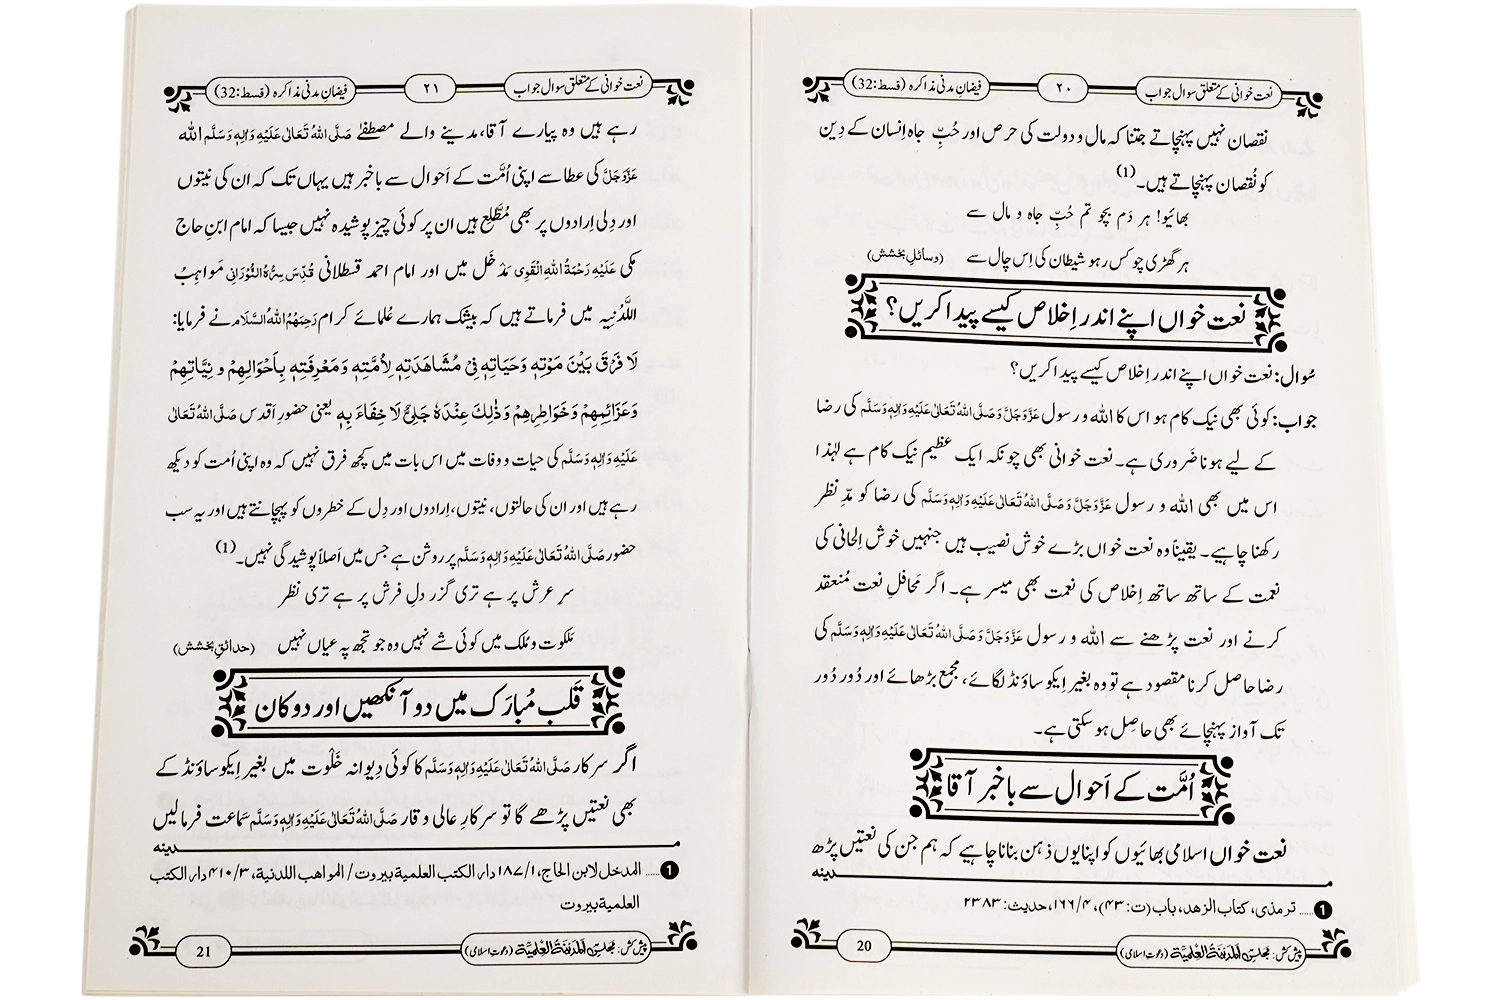 نعت خوانی کے متعلق سوال جواب
۲۰
فیضانِ مدنی مذاکرہ (قسط:32)
نقصان نہیں پہنچاتے جتنا کہ مال و دولت کی حرص اور حُبِّ جاہ اِنسان کے دِین
کو نُقصان پہنچاتے ہیں۔(1)
بھائیو! ہر دَم بچو تم حُبِّ جاہ و مال سے
ہر گھڑی چوکس رہو شیطان کی اِس چال سے (وسائلِ بخشش)
نعت خواں اپنے اندر اِخلاص کیسے پیدا کریں؟
سُوال: نعت خواں اپنے اندر اِخلاص کیسے پیدا کریں؟
جواب: کوئی بھی نیک کام ہو اس کا اللہ و رسول عَزَّوَجَلَّ وَصَلَّی اللہُ تَعَالٰی عَلَیْہِ وَاٰلِہٖ وَسَلَّم کی رضا
کے لیے ہونا ضَروری ہے۔ نعت خوانی بھی چونکہ ایک عظیم نیک کام ہے لہٰذا
اس میں بھی اللہ و رسول عَزَّوَجَلَّ وَصَلَّی اللہُ تَعَالٰی عَلَیْہِ وَاٰلِہٖ وَسَلَّم کی رضا کو مدِّ نظر
رکھنا چاہیے۔ یقیناً وہ نعت خواں بڑے خوش نصیب ہیں جنہیں خوش اِلحانی کی
نعمت کے ساتھ ساتھ اِخلاص کی نعمت بھی میسر ہے۔ اگر مَحافلِ نعت مُنعقد
کرنے اور نعت پڑھنے سے اللہ و رسول عَزَّوَجَلَّ وَصَلَّی اللہُ تَعَالٰی عَلَیْہِ وَاٰلِہٖ وَسَلَّم کی
رضا حاصل کرنا مقصود ہے تو وہ بغیر اِیکو ساؤنڈ لگائے، مجمع بڑھائے اور دُور دُور
تک آواز پہنچائے بھی حاصِل ہو سکتی ہے۔
اُمَّت کے اَحوال سے باخبر آقا
نعت خواں اسلامی بھائیوں کو اپنا یوں ذہن بنانا چاہیے کہ ہم جن کی نعتیں پڑھ
مــدینه
1 ..... ترمذی، کتاب الزھد، باب (ت: ۴۳)، ۴/۱۶۶، حدیث: ۲۳۸۳
پیش کش: مجلس المدینۃ العلمیۃ (دعوتِ اسلامی)
20
نعت خوانی کے متعلق سوال جواب
۲۱
فیضانِ مدنی مذاکرہ (قسط:32)
رہے ہیں وہ پیارے آقا، مدینے والے مصطفےٰ صَلَّی اللہُ تَعَالٰی عَلَیْہِ وَاٰلِہٖ وَسَلَّم اللہ
عَزَّوَجَلَّ کی عطا سے اپنی اُمَّت کے اَحوال سے باخبر ہیں یہاں تک کہ ان کی نیتوں
اور دِلی اِرادوں پر بھی مُطَّلِع ہیں ان پر کوئی چیز پوشیدہ نہیں جیسا کہ امام ابنِ حاج
مکی عَلَیْہِ رَحْمَۃُ اللہِ الْقَوِی مَدْخَل میں اور امام احمد قسطلانی قُدِّسَ سِرُّہُ النُّوْرَانِی مَواہِبُ
اللَّدُنِیہ میں فرماتے ہیں کہ بیشک ہمارے عُلمائے کرام رَحِمَہُمُ اللہُ السَّلَام نے فرمایا:
لَا فَرْقَ بَیْنَ مَوْتِہٖ وَحَیَاتِہٖ فِیْ مُشَاھَدَتِہٖ لِاُمَّتِہٖ وَمَعْرِفَتِہٖ بِاَحْوَالِھِمْ وَ نِیَّاتِھِمْ
وَعَزَائِمِھِمْ وَخَوَاطِرِھِمْ وَذٰلِکَ عِنْدَہٗ جَلِیٌّ لَا خِفَاءَ بِہٖ یعنی حضورِ اَقدس صَلَّی اللہُ تَعَالٰی
عَلَیْہِ وَاٰلِہٖ وَسَلَّم کی حیات و وفات میں اس بات میں کچھ فرق نہیں کہ وہ اپنی اُمت کو دیکھ
رہے ہیں اور ان کی حالتوں، نیتوں، اِرادوں اور دِل کے خطروں کو پہچانتے ہیں اور یہ سب
حضور صَلَّی اللہُ تَعَالٰی عَلَیْہِ وَاٰلِہٖ وَسَلَّم پر روشن ہے جس میں اَصلاً پوشیدگی نہیں۔(1)
سرِ عرش پر ہے تری گزر دلِ فرش پر ہے تری نظر
مَلکوت و مُلک میں کوئی شے نہیں وہ جو تجھ پہ عیاں نہیں (حدائقِ بخشش)
قَلب مُبارَک میں دو آنکھیں اور دو کان
اگر سرکار صَلَّی اللہُ تَعَالٰی عَلَیْہِ وَاٰلِہٖ وَسَلَّم کا کوئی دِیوانہ خَلْوت میں بغیر اِیکو ساؤنڈ کے
بھی نعتیں پڑھے گا تو سرکارِ عالی وقار صَلَّی اللہُ تَعَالٰی عَلَیْہِ وَاٰلِہٖ وَسَلَّم سَماعت فرمالیں
مــدینه
1 ..... المدخل لابن الحاج، ۱/۱۸۷ دار الکتب العلمیة بیروت / المواھب اللدنیة، ۳/۴۱۰ دار الکتب
العلمیة بیروت
پیش کش: مجلس المدینۃ العلمیۃ (دعوتِ اسلامی)
21